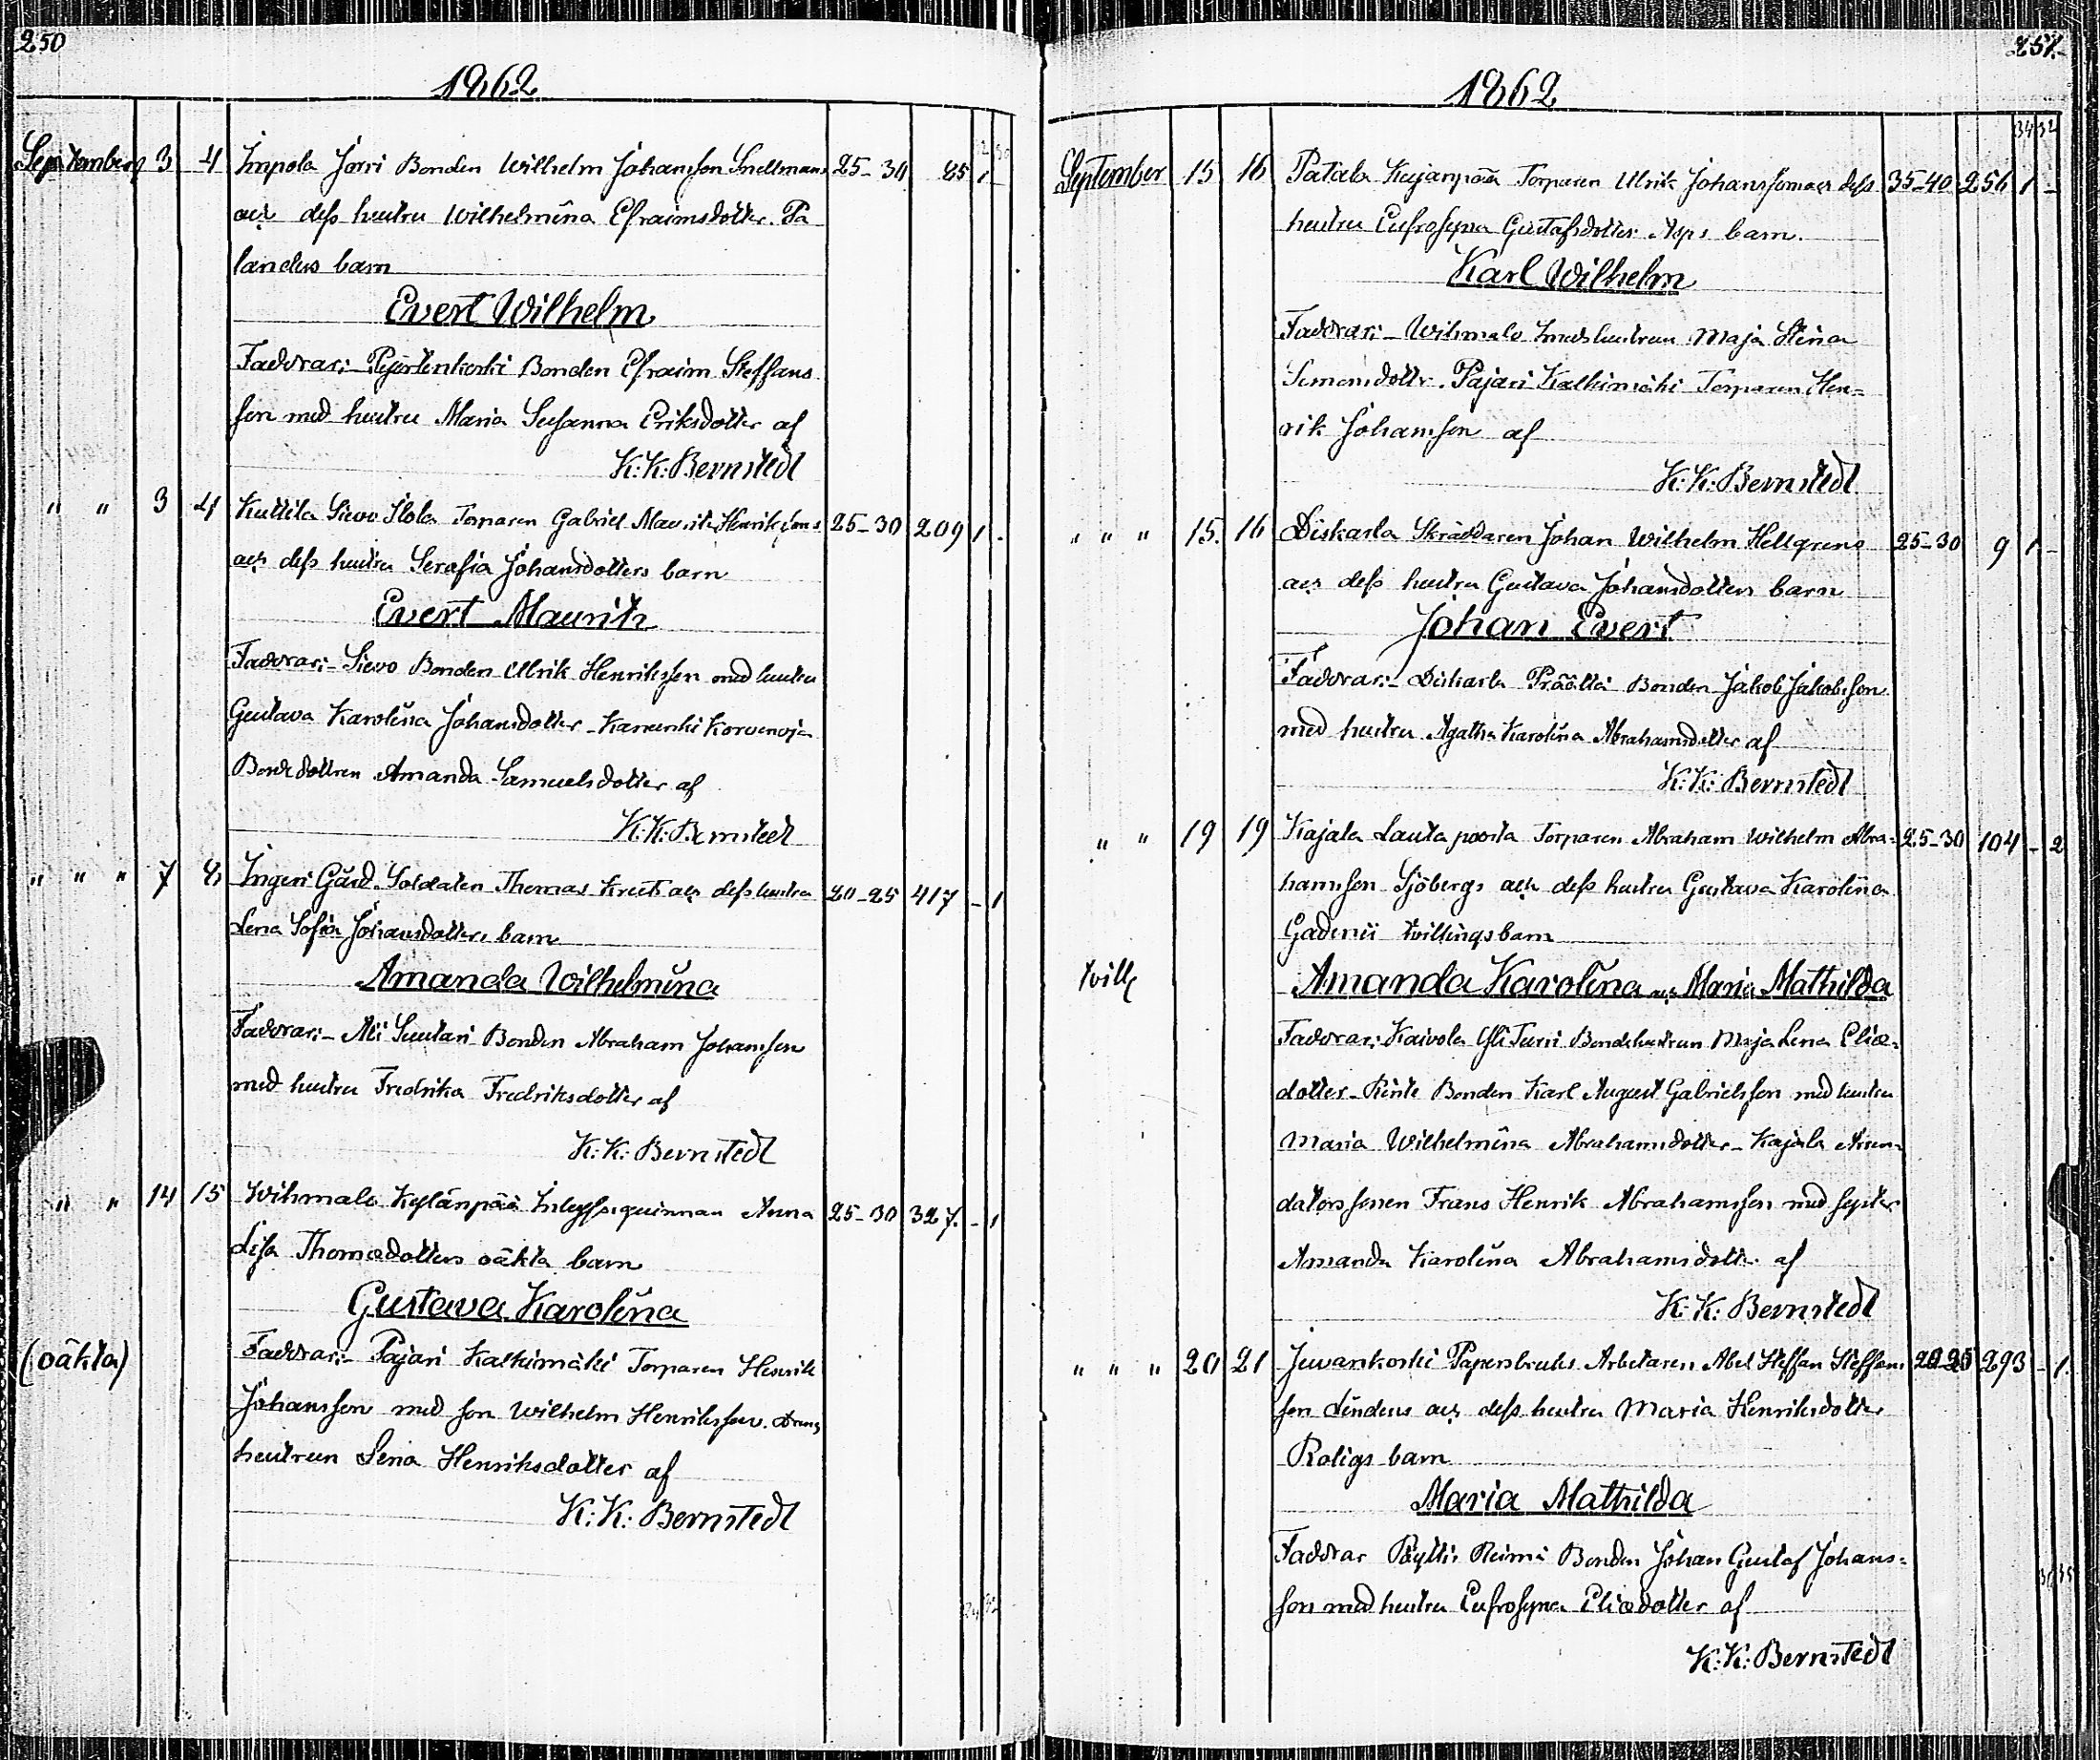 250
1862
September 3 4 Impola Jorri Bonden Wilhelm Johansson Snellmans 25-30 85 1 -
och dess hustru Wilhelmina Efraimsdotter Pa
landus barn
Evert Wilhelm
Faddrar:- Pyörtenkoski Bonden Efraim Steffans
son med hustru Maria Susanna Eriksdotter af
K: K: Bernstedt
" " 3 4 Kuttila Sievo Torparen Gabriel Mauritz Henrikssons 25-30 209 1 -
och dess hustru Serafia Johansdotters barn
Evert Mauritz
Faddrar:- Sievo Bonden Ulrik Henriksson med hustru
Gustava Karolina Johansdotter - Karunki Korvenoja
Bondedottren Amanda Samuelsdotter af
K: K: Bernstedt
" " " 7 8 Ingeri Gård Soldaten Thomas och dess hustru 20-25 417 - 1
Lena Sofia Johansdotters barn
Amanda Wilhelmina
Faddrar:- Ali Suutari Bonden Abraham Johansson
med hustru Fredrika Fredriksdotter af
K: K: Bernstedt
" " 14 15 Wihmalo Kylänpää Inhysesquinnan Anna 25-30 327 - 1
Lisa Thomædotters oäkta barn
Gustava Karolina
(oäkta) Faddrar:- Pajari Kalkimäki Torparen Henrik
Johansson med son Wilhelm Henriksson. Dreng
hustrun Lena Henriksdotter af
K: K: Bernstedt
24 32
251.
1862
34 32
September 15 16 Patala Kujanpää Torparen Ulrik Johanssons och dess 35-40 256 1 -
hustru Eufrosyna Gustafsdotter Asps barn.
Karl Wilhelm
Faddrar:- Wihmalo Smedshustrun Maja Stina
Simonsdotter. Pajari Kalkimäki Torparen Hen-
rik Johansson af
K: K: Bernstedt
" " " 15. 16 Diskarla Skräddaren Johan Wilhelm Hellgrens 25-30 9 1 -
och dess hustru Gustava Johansdotters barn
Johan Evert
Faddrar:- Diskarla Präättä Bonden Jakob Jakobsson
med hustru Agatha Karolina Abrahamsdotter af
K: K: Bernstedt
" " 19 19 Kajala Lautaporta Torparen Abraham Wilhelm Abra- 25-30 104 - 2
hamsson Sjöbergs och dess hustru Gustava Karolina
Gadenii tvillingsbarn
tvill Amanda Karolina och Maria Mathilda
Faddrar: Kaivola Yli Turri Bondehustrun Maja Lena Eliæ-
dotter - Rinte Bonden Karl August Gabrielsson med hustru
Maria Wilhelmina Abrahamsdotter - Kajala Arren-
datorssonen Frans Henrik Abrahamsson med syster
Amanda Karolina Abrahamsdotter af
K: K: Bernstedt
" " " 20 21 Juvankoski Papersbruks Arbetaren Abel Steffan Steffans 20-25 293 - 1.
son Lindens och dess hustru Maria Henriksdotter
Roligs barn
Maria Mathilda
Faddrar Reimi Bonden Johan Gustaf Johans-
son med hustru Eufrosyna Eliædotter af
36 35
K: K: Bernstedt